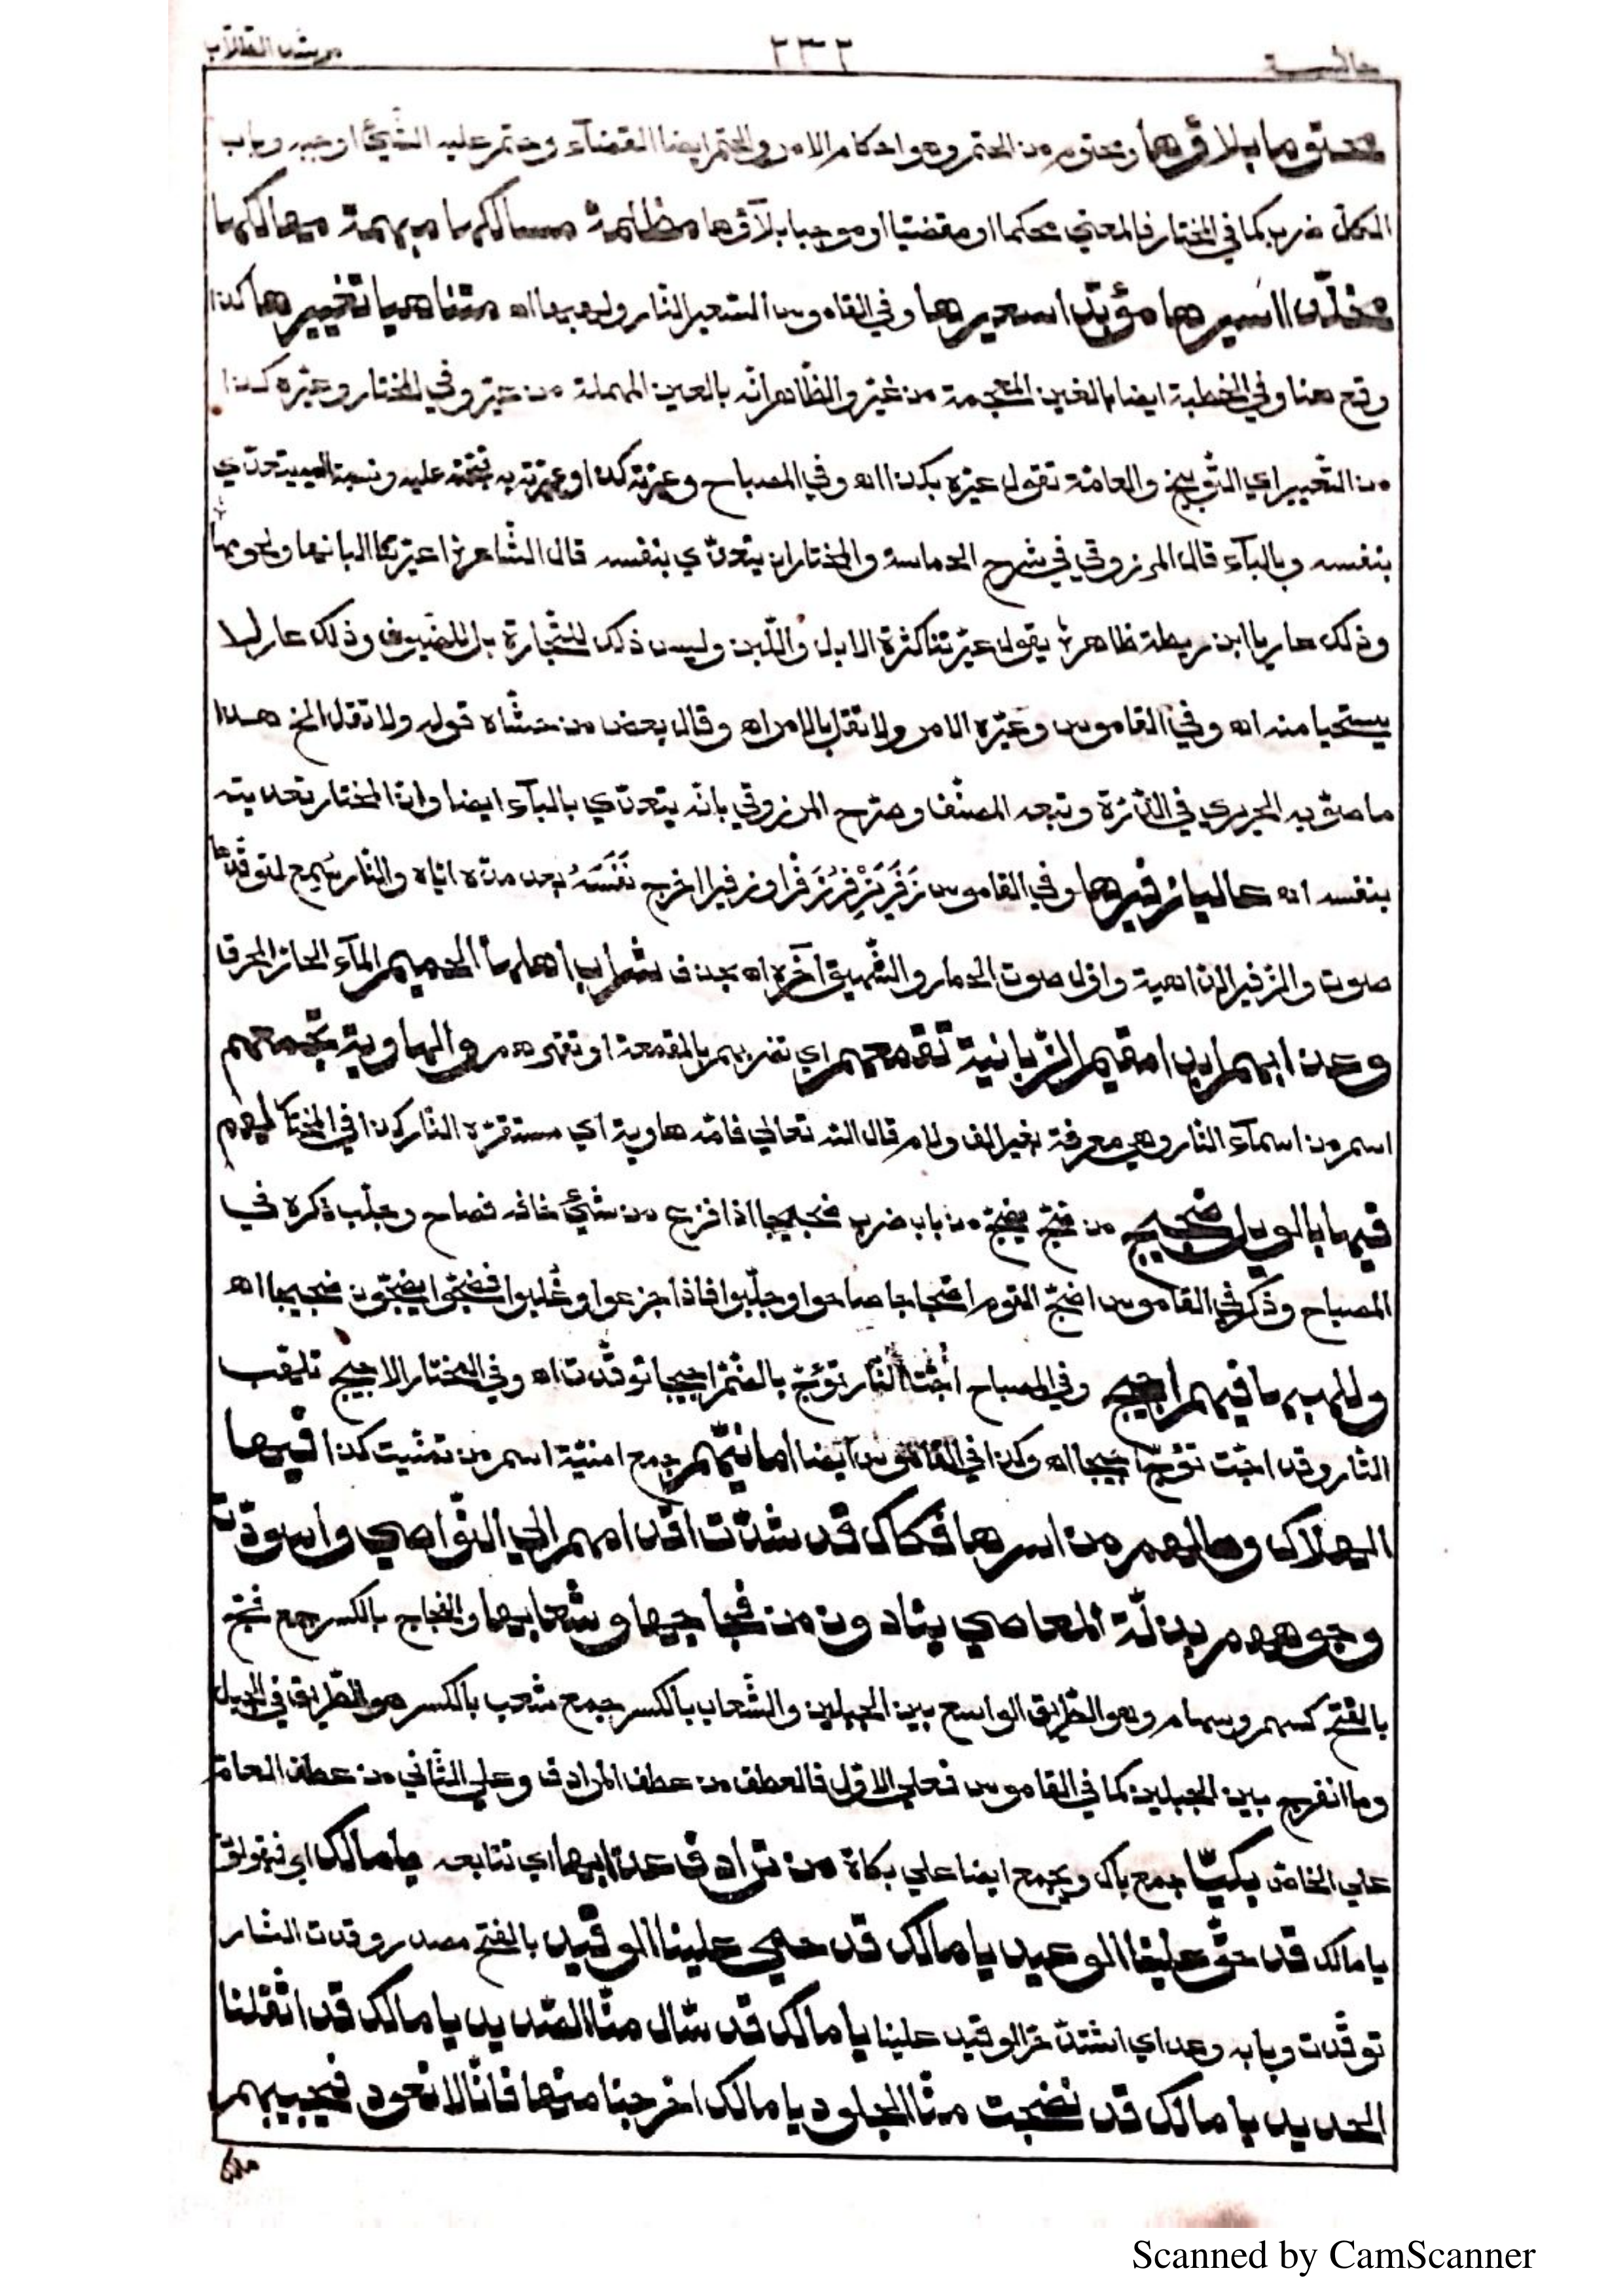 حاشية ٢٣٢ مرشد الطلاب
محتوما بلاؤها ومحتوم من الحتم وهو احكام الامر والحتم ايضا القضآء وحتم عليه الشّيئ اوجبه وباب
الكلّ ضرب كما في المختار فالمعني محكما او مقضيا او موجبا بلآؤها مظلمة مسالكها مبهمة مهالكها
مخلّدا اسيرها مؤبّدا سعيرها وفي القاموس السّعير النّار ولهبها اه متناهيا تغييرها كذا
وقع هنا وفي الخطبة ايضا بالغين المعجمة من غيّر والظّاهر انّه بالعين المهملة من عيّر وفي المختار وعيّره كذا
من التّعيير اي التّوبيخ والعامّة تقول عيّره بكذا اه وفي المصباح وعيّرته كذا وعيّرته به قبّحته عليه ونسبته اليه يتعدّي
بنفسه وبالبآء قال المرزوقي في شرح الحماسة والمختار ان يتعدّي بنفسه قال الشّاعر اعيّرتنا البانها ولحومها
وذلك عار يا ابن ريطة ظاهر يقول عيّرتنا كثرة الابل واللّبن وليس ذلك للتّجارة بل للضّيوف وذلك عار لا
يستحيا منه اه وفي القاموس وعيّره الامر ولا تقل بالامر اه وقال بعض من حشّاه قوله ولا تقل الخ هذا
ما صوّبه الحريري في الدّرّة وتبعه المصنّف وصرّح المرزوقي بانّه يتعدّي بالبآء ايضا وانّ المختار تعديته
بنفسه اه عاليا زفيرها وفي القاموس زَفَرَ يَزْفِرُ زَفْرًا وزفيرا اخرج نَفَسَهُ بعد مدّه ايّاه والنّار سُمِع لتوقّدها
صوت والزّفير الدّاهية واوّل صوت الحمار والشّهيق آخره اه بحذف شراب اهلها الحميم المآء الحارّ المحرق
وعذابهم ابدا مقيم الزّبانية تقمعهم اي تضربهم بالمقمعة او تقهرهم والهاوية تجمعهم
اسم من اسمآء النّار وهي معرفة بغير الف ولام قال الله تعالي فامّه هاوية اي مستقرّه النّار كذا في المختار لهم
فيها بالويل ضجيج من ضجّ يضجّ من باب ضرب ضجيجا اذا فزع من شيئ خافه فصاح وجلّب ذكره في
المصباح وذكر في القاموس اضجّ القوم اضجاجا صاحوا وجلّبوا فاذا جزعوا وغُلبوا فضجّوا يضجّون ضجيجا اه
وللهب ما فيهم اجيج وفي المصباح اجّت النّار تؤجّ بالضّمّ اجيجا توقّدت اه وفي المختار الاجيج تلهّب
النّار وقد اجّت تؤجّ اجيجا اه وكذا في القاموس ايضا امانيّهم جمع امنيّة اسم من تمنّيت كذا فيها
الهلاك وما لهم من اسرها فكاك قد شدّت اقدامهم الي النّواصي واسودّت
وجوههم بذلّة المعاصي ينادون من فجاجها وشعابها والفجاج بالكسر جمع فجّ
بالفتح كسهم وسهام وهو الطّريق الواسع بين الجبلين والشّعاب بالكسر جمع شعب بالكسر هو الطّريق في الجبل
وما انفرج بين الجبلين كما في القاموس فعلي الاوّل فالعطف من عطف المرادف وعلي الثّاني من عطف العامّ
علي الخاصّ بكيّا جمع باك ويجمع ايضا علي بكاة من ترادف عذابها اي تتابعه يا مالك اي فيقولون
يا مالك قد حقّ علينا الوعيد يا مالك قد حمي علينا الوقيد بالفتح مصدر وقدت النّار
توقّدت وبابه وعد اي اشتدّ حرّ الوقيد علينا يا مالك قد سال منّا الصّديد يا مالك قد اثقلنا
الحديد يا مالك قد نضجت منّا الجلود يا مالك اخرجنا منها فانّا لا نعود فيجيبهم
مالك
Scanned by CamScanner